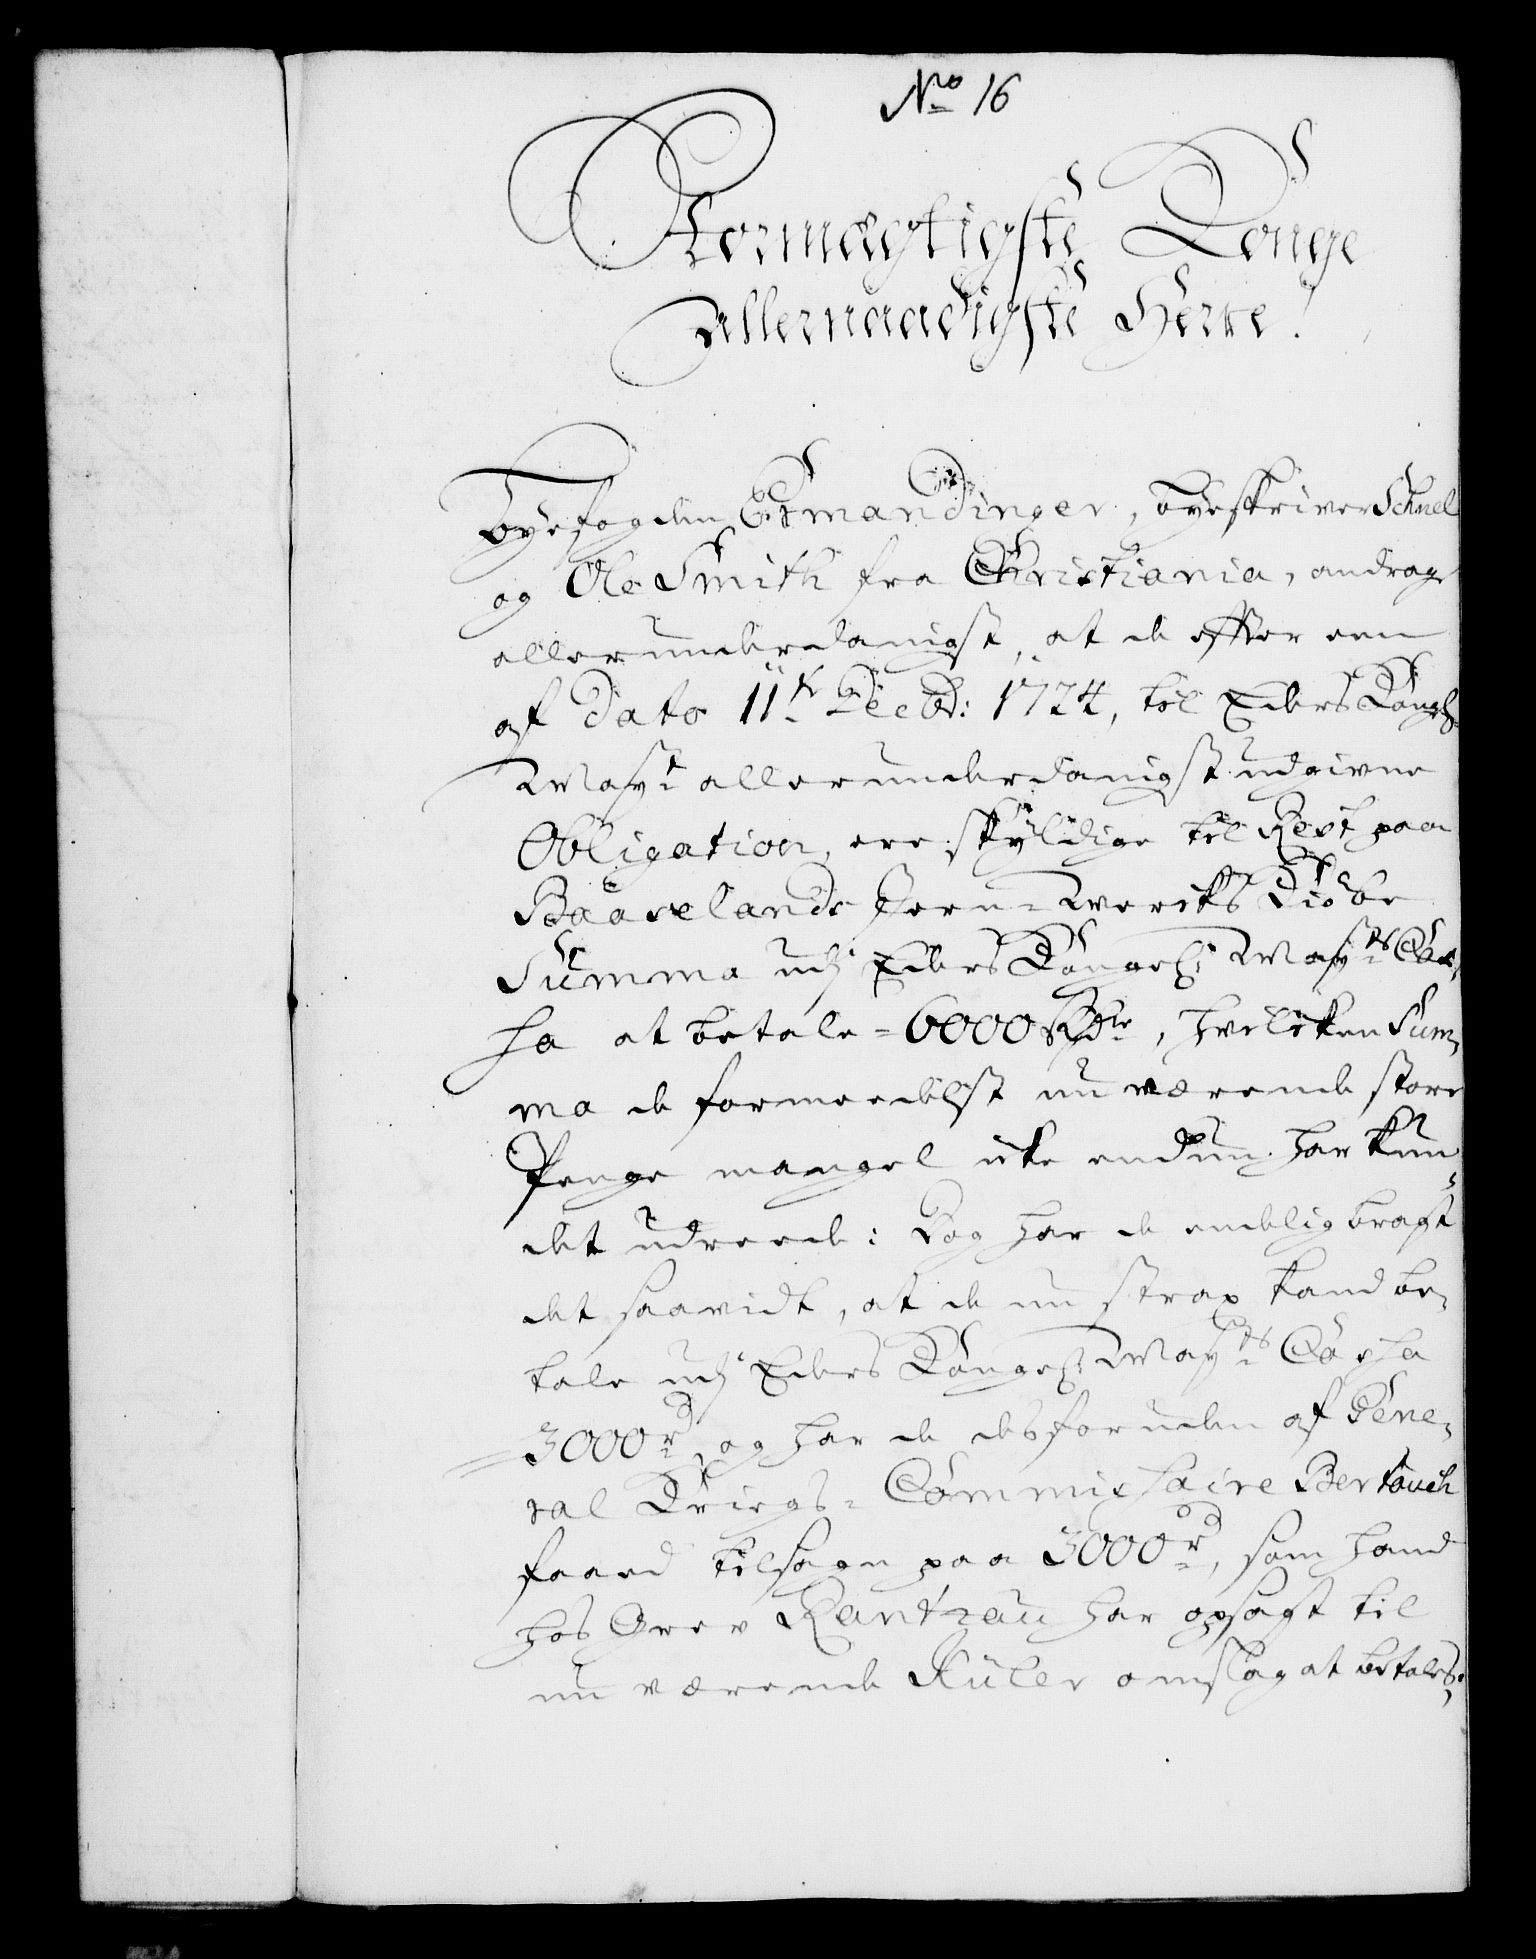 No 16
Stormægtigste Konge
Allernaadigste Herre!
Byefogden Ermandinger, Byeskriver Schnel
og Ole Smith fra Christiania, andrage
allerunderdanigst, at de efter een
af Dato 11te Decbr: 1724, til Eders Kongl:
Mayt allerunderdanigst udgivne
Obligation, ere skÿldige til Rest paa
Baaselands Jern-Wercks Kiøbe
Summa udj Eders Kongel: Mayts Cas,
sa at betale = 6000 Rdlr, hvilcken Sum,
ma de formeedelst nu værende store
Penge mangel icke endnu har kun,
det udreede: Dog har de endelig bragt
det saavidt, at de nu strax kand be,
tale udj Eders Kongel: Mayts Cassa
= 3000 rd, og har de desforuden af Gene,
ral Kriegs-Commissaire Bertouch
faaed tilsagn paa 3000 rd, som hand
hos Grev Rantzau har opsagt til
nu værende Kieler omslag at betales,